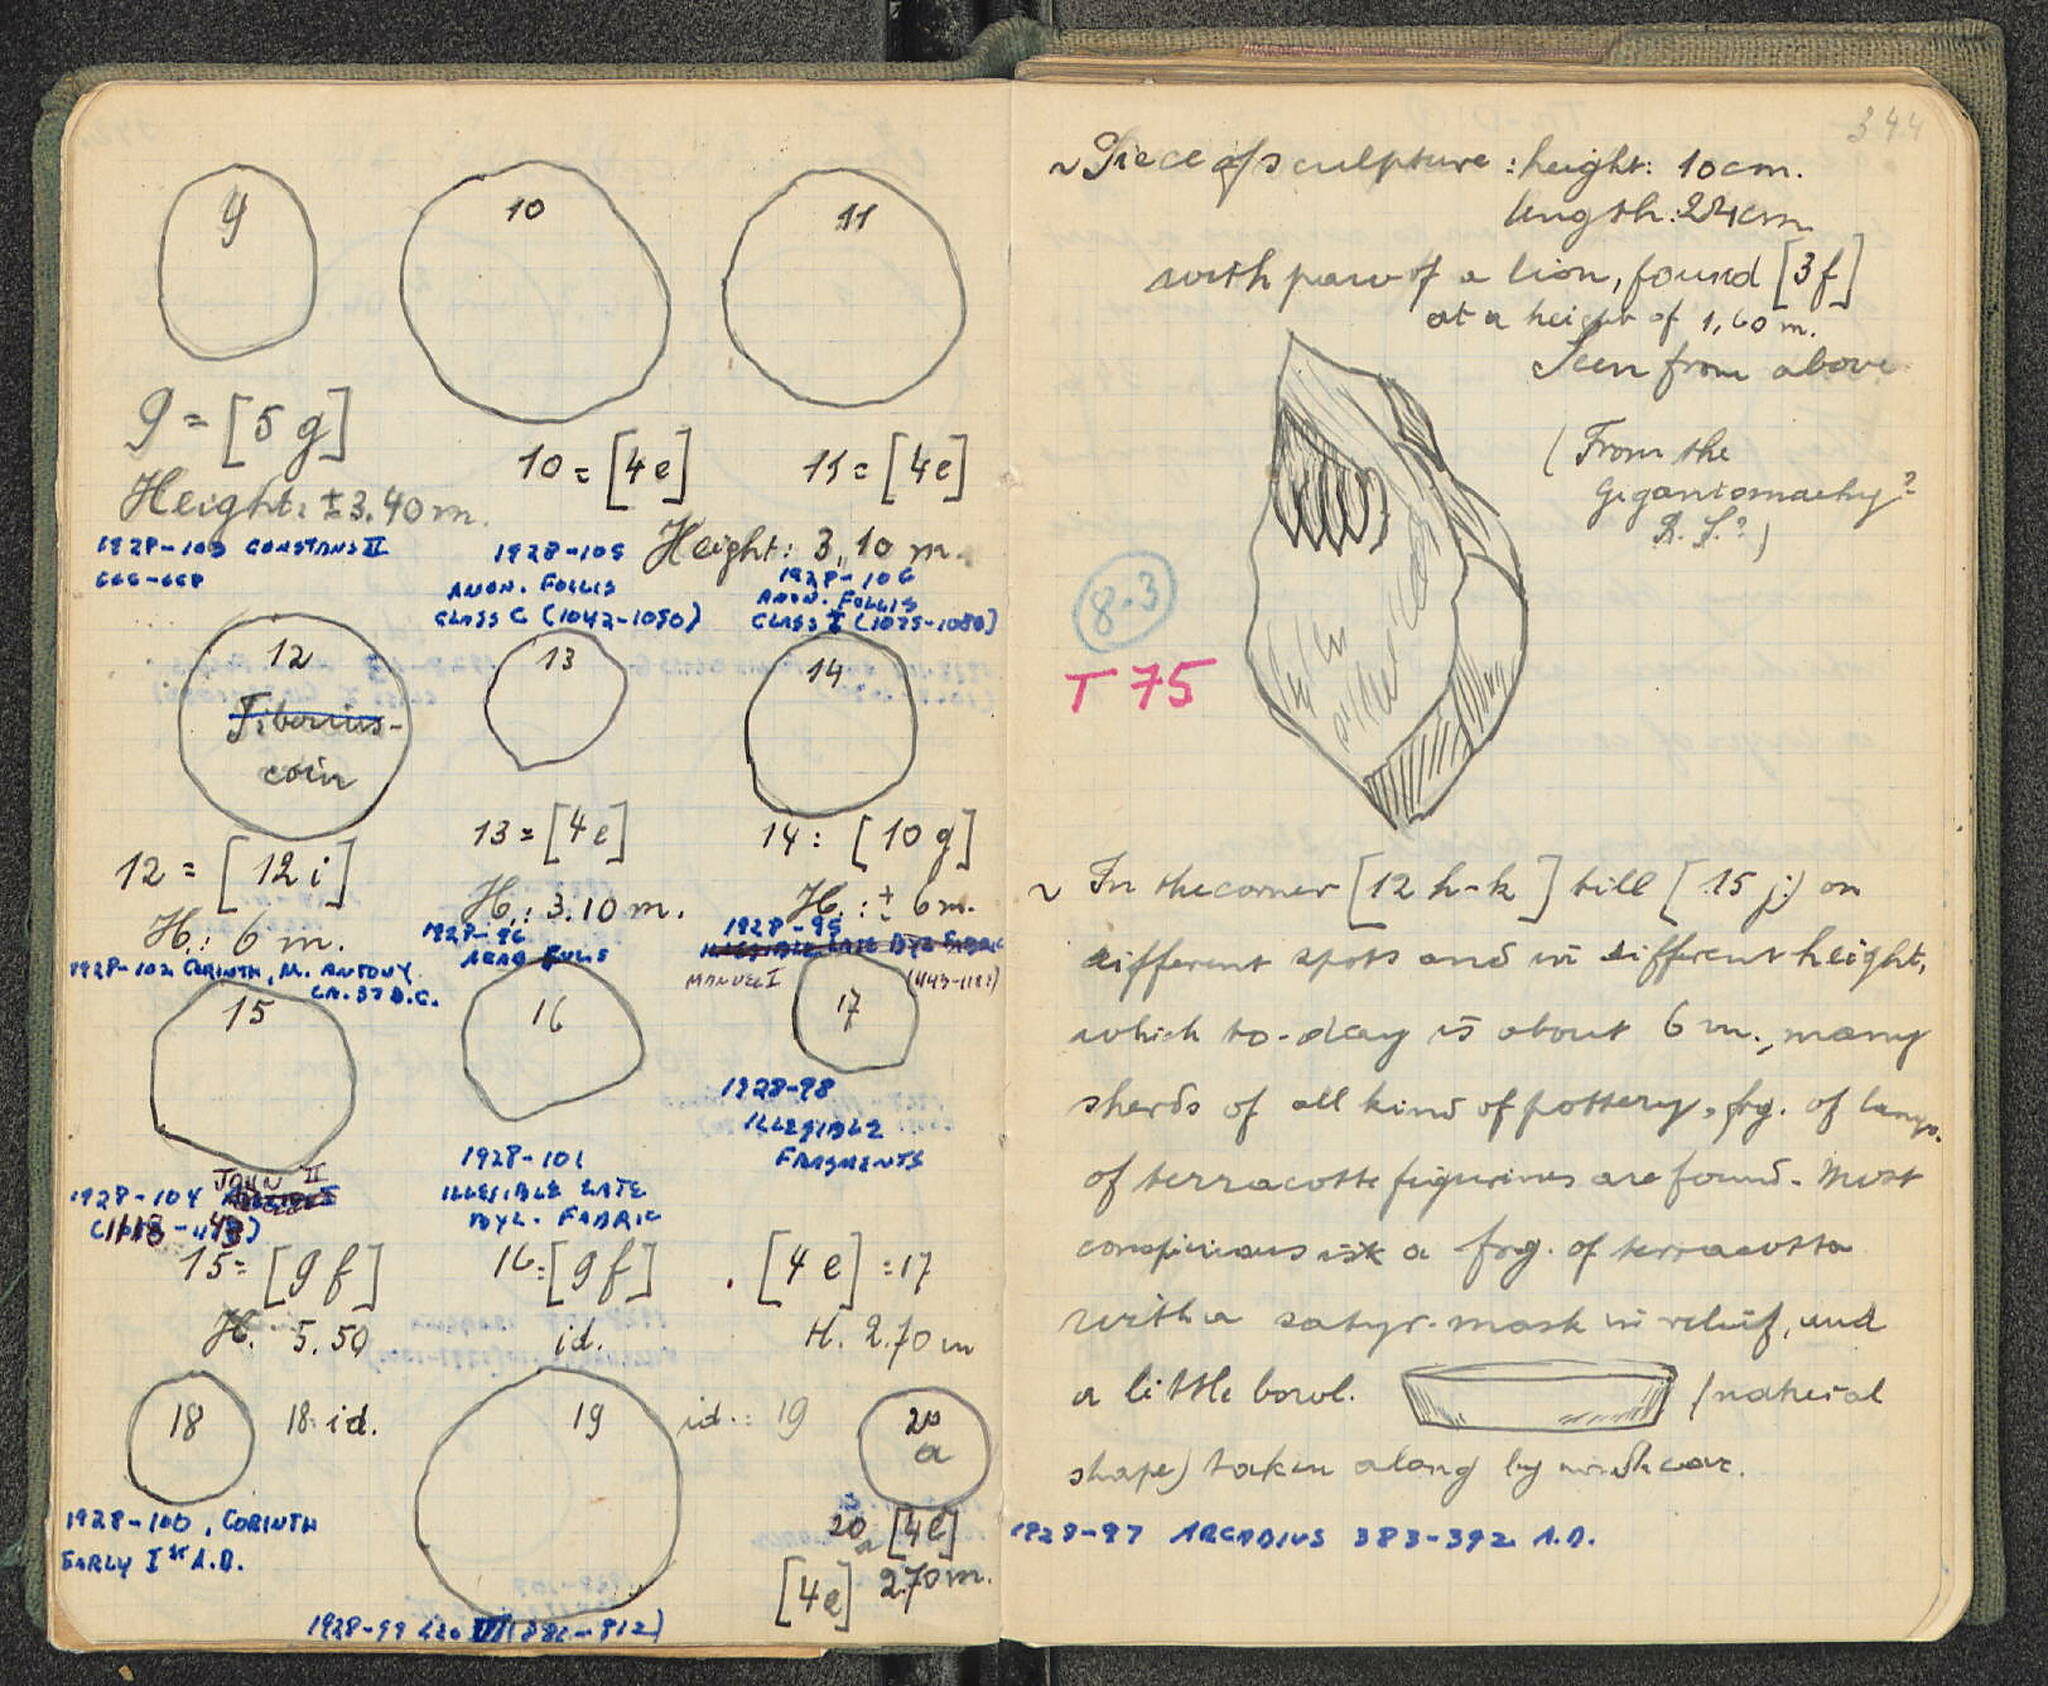 9
10
11
9 = [5 g]
Height: ± 3.40 m.
1928-103 CONSTANS II
666-668
10 = [4 e]
11 = [4 e]
Height: 3,10 m.
1928-105
ANON. FOLLIS
CLASS C (1042-1050)
1928-106
ANON. FOLLIS
CLASS I (1075-1080)
12
Tiberius-
coin
13
14
12 = [12 i]
H.: 6 m.
1928-102 CORINTH, M. ANTONY
CA. 37 B.C.
13 = [4 e]
H.: 3.10 m.
1928-96
ARAB FULS
14: [10 g]
H.: ± 6 m.
1928-95
ILLEGIBLE LATE BYZ FABRIC
MANUEL I (1143-1180)
15
16
17
1928-104 JOHN II
(1118-43)
15 = [9 f]
H. 5.50
1928-101
ILLEGIBLE LATE
BYZ. FABRIC
16 = [9 f]
id.
1928-98
ILLEGIBLE
FRAGMENTS
[4 e] = 17
H. 2.70 m
18
18: id.
1928-100, CORINTH
EARLY Ist A.D.
19
id.: 19
1928-99 LEO VI (886-912)
20
a
20 a [4 e]
[4e] 2.70 m.
344
~ Piece of sculpture: height: 10 cm.
length: 24 cm.
with paw of a lion, found [3 f]
at a height of 1,60 m.
Seen from above
(From the
Gigantomachy?
R. S.?)
8.3
T 75
~ In the corner [12 h-k] till [15 j.) on
different spots and in different height,
which to-day is about 6 m., many
sherds of all kind of pottery, frg. of lamps.
of terracotte figurines are found. Most
conspicious is a frg. of terracotta
with a satyr-mask in relief, and
a little bowl. (natural
shape) taken along by
1928-97 ARCADIUS 383-392 A.D.